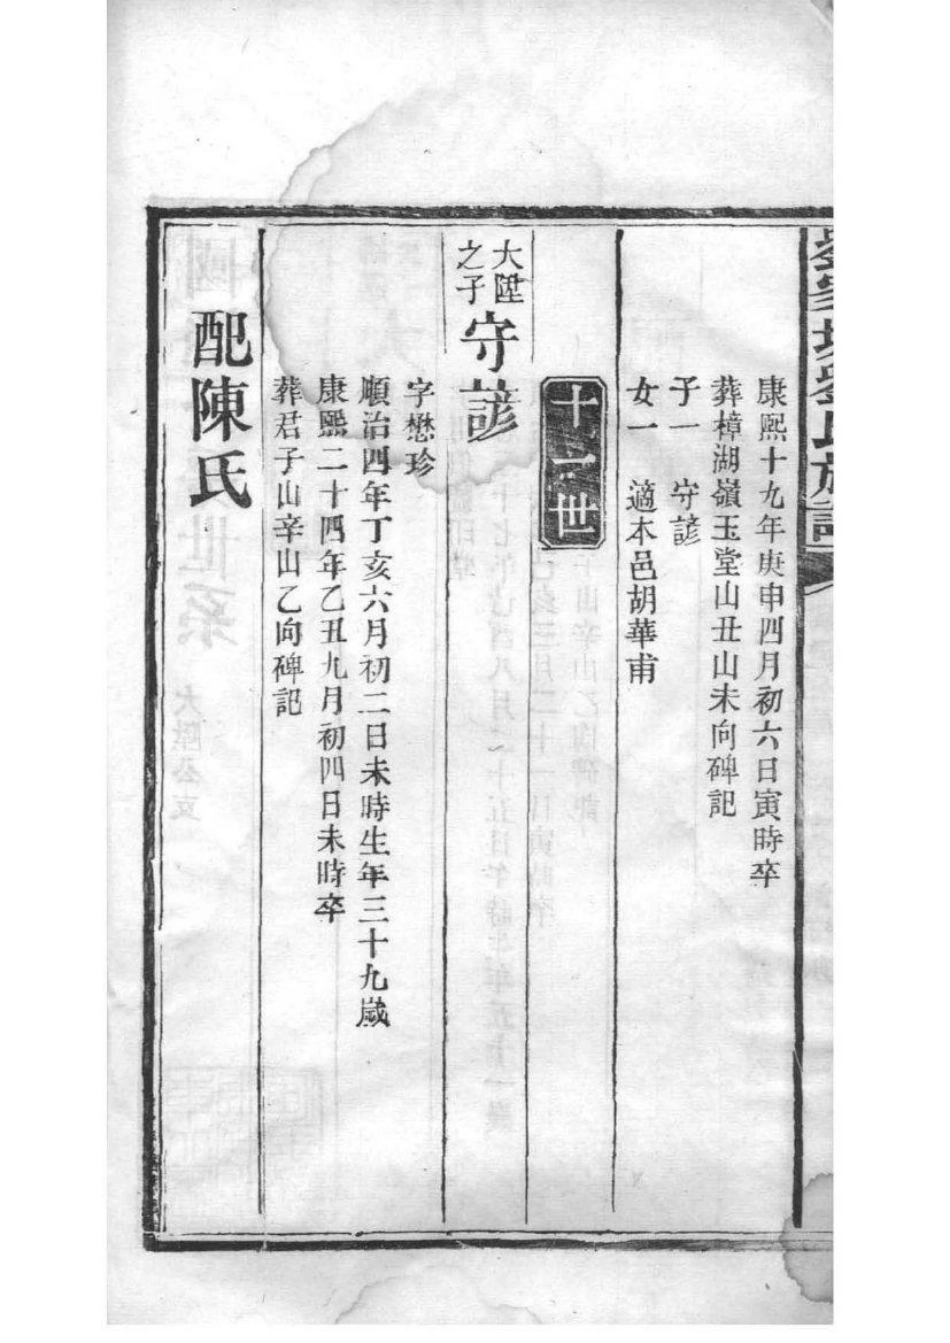 康熙十九年庚申四月初六日寅時卒
葬樟湖嶺玉堂山丑山未向碑記
子一　守諺
女一　適本邑胡華甫
十一世
大陞
之子
守諺
字懋珍
順治四年丁亥六月初二日未時生年三十九歲
康熙二十四年乙丑九月初四日未時卒
葬君子山辛山乙向碑記
配陳氏